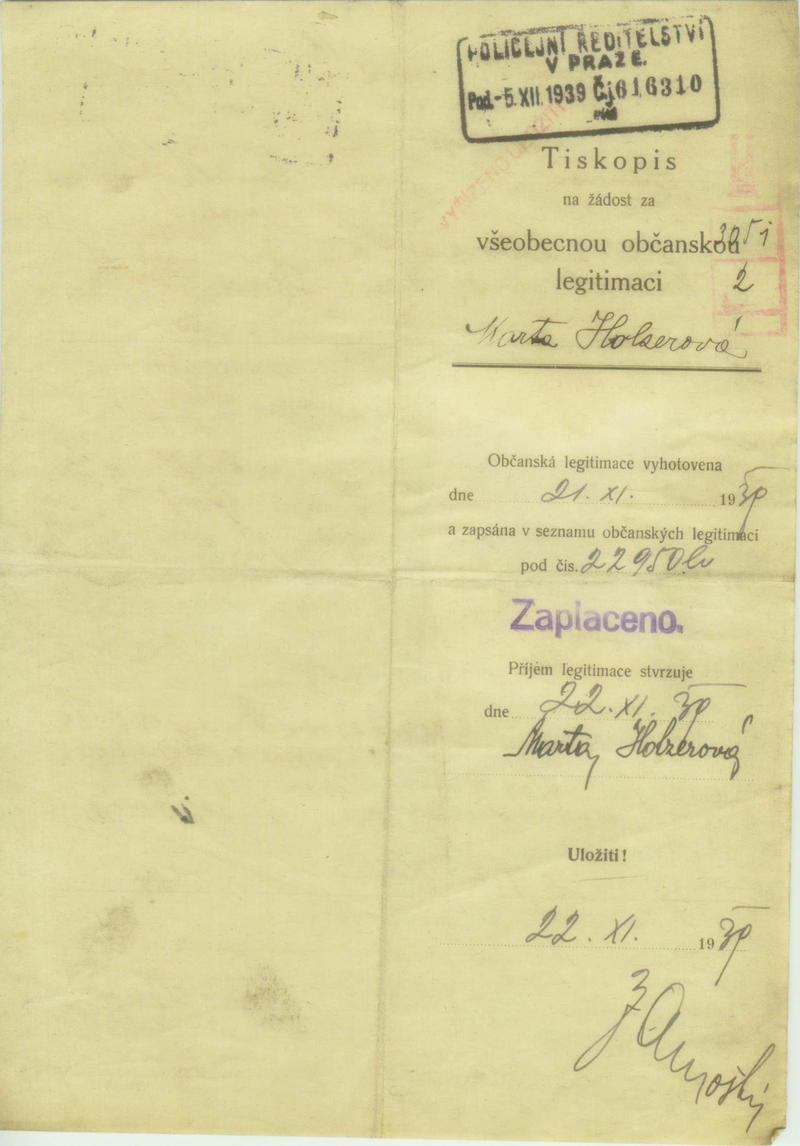 POLICEJNÍ ŘEDITELSTVÍ
V PRAZE.
Pod. -5. XII. 1939 Čj 616310
Tiskopis
na žádost za
všeobecnou občanskou
legitimaci 2
Marta Holserová
Občanská legitimace vyhotovena
dne 21. XI. 1939
a zapsána v seznamu občanských legitimací
pod čis. 22950
Zaplaceno.
Příjem legitimace stvrzuje
dne 22. XI. 39
Marta Holzerová
Uložiti!
22. XI. 1939